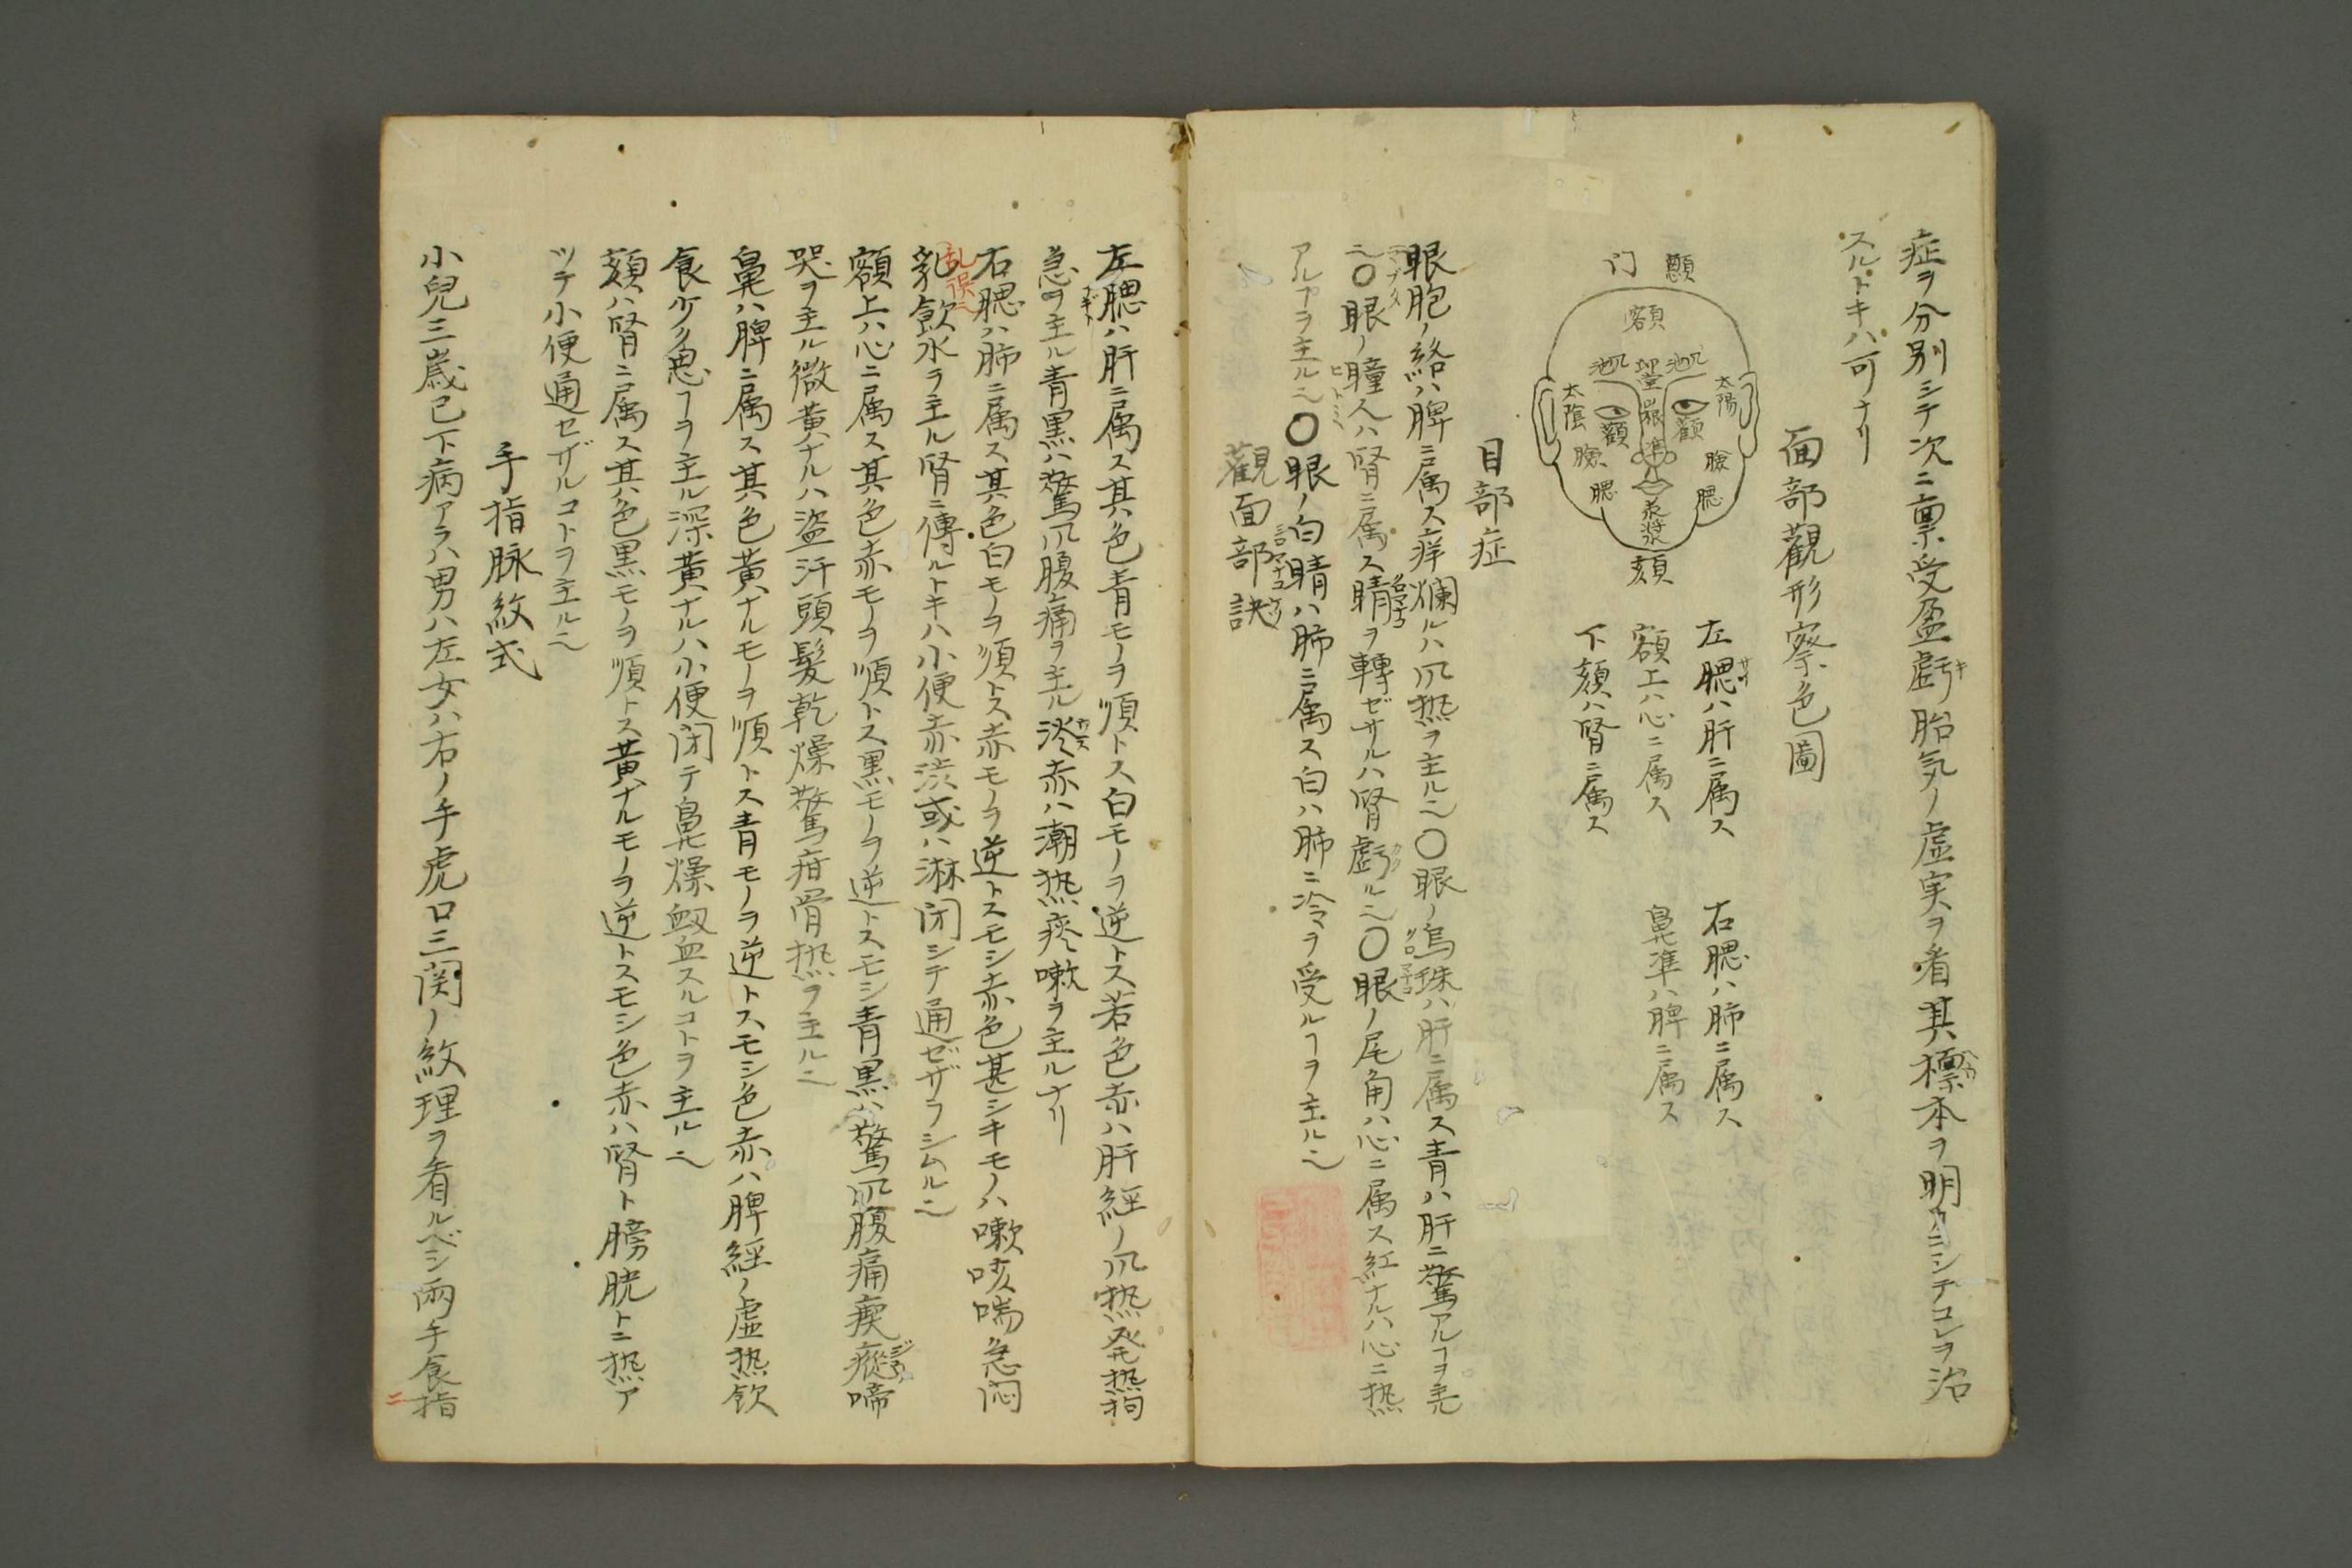 症ヲ分別シテ次ニ禀受盈虧胎気ノ虚実ヲ看其標本ヲ明カニシテコレヲ治
スルトキハ可ナリ
面部觀形察色圖
顖门
額
太陽
太陰
臉
腮
臉
腮
承漿
頦
左腮ハ肝ニ属ス
右腮ハ肺ニ属ス
額上ハ心ニ属ス
鼻準ハ脾ニ属ス
下頦ハ腎ニ属ス
目部症
眼胞ノ絡ハ脾ニ属ス痒爛ルハ风热ヲ主ル也〇眼ノ烏珠ハ肝ニ属ス青ハ肝ニ驚アルヿヲ主
ル〇眼ノ瞳人ハ腎ニ属ス睛ヲ轉ゼサルハ腎虧ル也〇眼ノ尾角ハ心ニ属ス紅ナルハ心ニ热
アルヿヲ主ル也〇眼ノ白睛ハ肺ニ属ス白ハ肺ニ冷ヲ受ルヿヲ主ル也
觀面部訣
左腮ハ肝ニ属ス其色青モノヲ順トス白モノヲ逆トス若色赤ハ肝経ノ风热発热拘
急ヲ主ル青黒ハ驚风腹痛ヲ主ル淡赤ハ潮热痰嗽ヲ主ルナリ
右腮ハ肺ニ属ス其色白モノヲ順トス赤モノヲ逆トスモシ赤色甚シキモノハ嗽咳喘急闷
乳飲水ヲ主ル腎ニ傳ルトキハ小便赤渋或ハ淋闭シテ通ゼザラシムル也
額上ハ心ニ属ス其色赤モノヲ順トス黒モノヲ逆トスモシ青黒ハ驚风腹痛瘈瘲啼
哭ヲ主ル微黄ナルハ盗汗頭髪乾燥驚疳骨热ヲ主ル也
鼻ハ脾ニ属ス其色黄ナルモノヲ順トス青モノヲ逆トスモシ色赤ハ脾経ノ虚热飲
食少ク思フヿヲ主ル深黄ナルハ小便闭テ鼻燥衂血スルコトヲ主ル也
頦ハ腎ニ属ス其色黒モノヲ順トス黄ナルモノヲ逆トスモシ色赤ハ腎ト膀胱トニ热ア
ツテ小便通セザルコトヲ主ル也
手指脉紋式
小兒三歳已下病アラハ男ハ左女ハ右ノ手虎口三関ノ紋理ヲ看ルベシ兩手食指